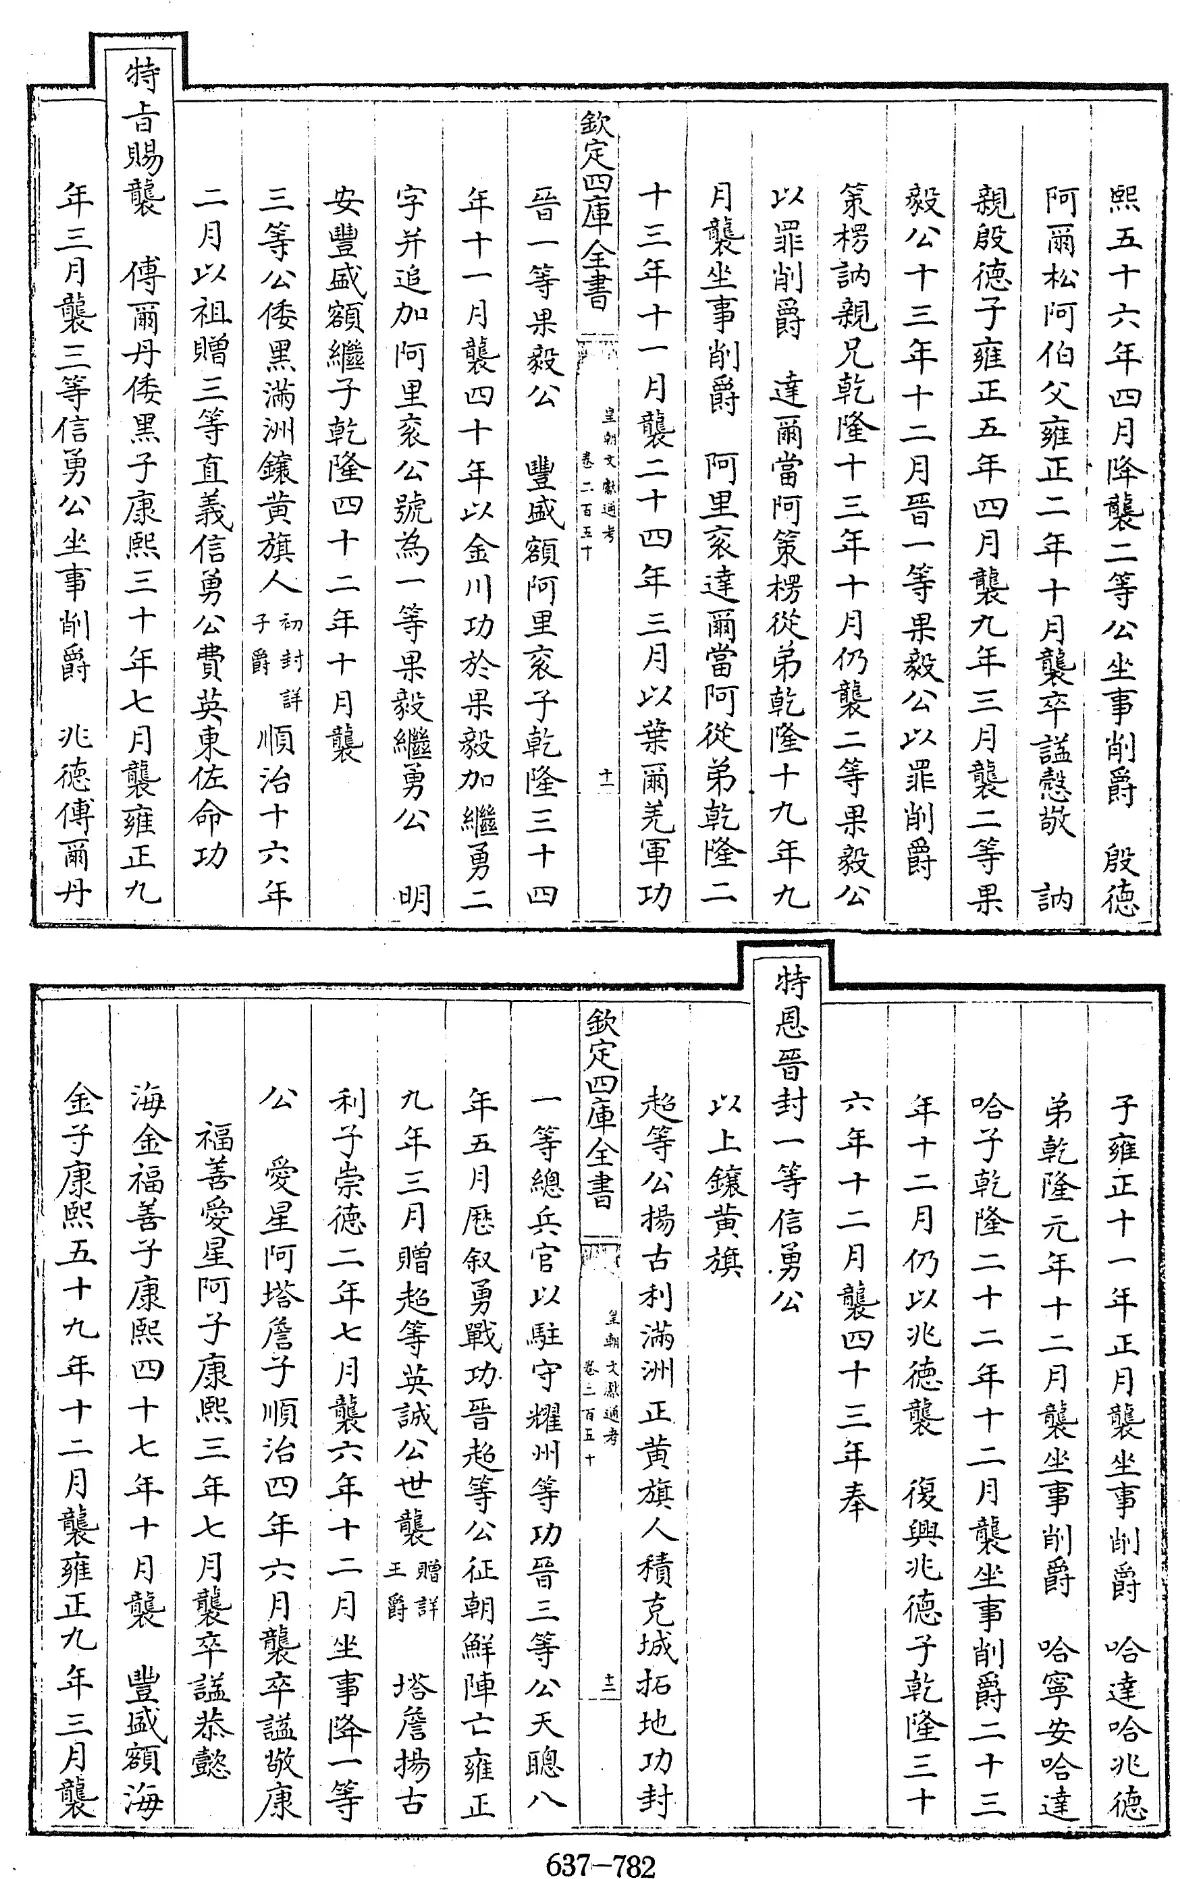 熙五十六年四月降襲二等公坐事削爵　殷德
阿爾松阿伯父雍正二年十月襲卒謚慤敬　訥
親殷德子雍正五年四月襲九年三月襲二等果
毅公十三年十二月晉一等果毅公以罪削爵
策楞訥親兄乾隆十三年十月仍襲二等果毅公
以罪削爵　達爾當阿策楞從弟乾隆十九年九
月襲坐事削爵　阿里衮達爾當阿從弟乾隆二
十三年十一月襲二十四年三月以葉爾羌軍功
欽定四庫全書
皇朝文獻通考
卷二百五十
十一
晉一等果毅公　豐盛額阿里衮子乾隆三十四
年十一月襲四十年以金川功於果毅加繼勇二
字并追加阿里衮公號為一等果毅繼勇公　明
安豐盛額繼子乾隆四十二年十月襲
三等公倭黑滿洲鑲黃旗人初封詳子爵順治十六年
二月以祖贈三等直義信勇公費英東佐命功
特旨賜襲　傅爾丹倭黑子康熙三十年七月襲雍正九
年三月襲三等信勇公坐事削爵　兆德傅爾丹
子雍正十一年正月襲坐事削爵　哈達哈兆德
弟乾隆元年十二月襲坐事削爵　哈寧安哈達
哈子乾隆二十二年十二月襲坐事削爵二十三
年十二月仍以兆德襲　復興兆德子乾隆三十
六年十二月襲四十三年奉
特恩晉封一等信勇公
以上鑲黃旗
超等公揚古利滿洲正黃旗人積克城拓地功封
欽定四庫全書
皇朝文獻通考
卷二百五十
十二
一等總兵官以駐守耀州等功晉三等公天聰八
年五月歷叙勇戰功晉超等公征朝鮮陣亡雍正
九年三月贈超等英誠公世襲贈詳王爵　塔詹揚古
利子崇德二年七月襲六年十二月坐事降一等
公　愛星阿塔詹子順治四年六月襲卒謚敬康
福善愛星阿子康熙三年七月襲卒謚恭懿
海金福善子康熙四十七年十月襲　豐盛額海
金子康熙五十九年十二月襲雍正九年三月襲
637-782